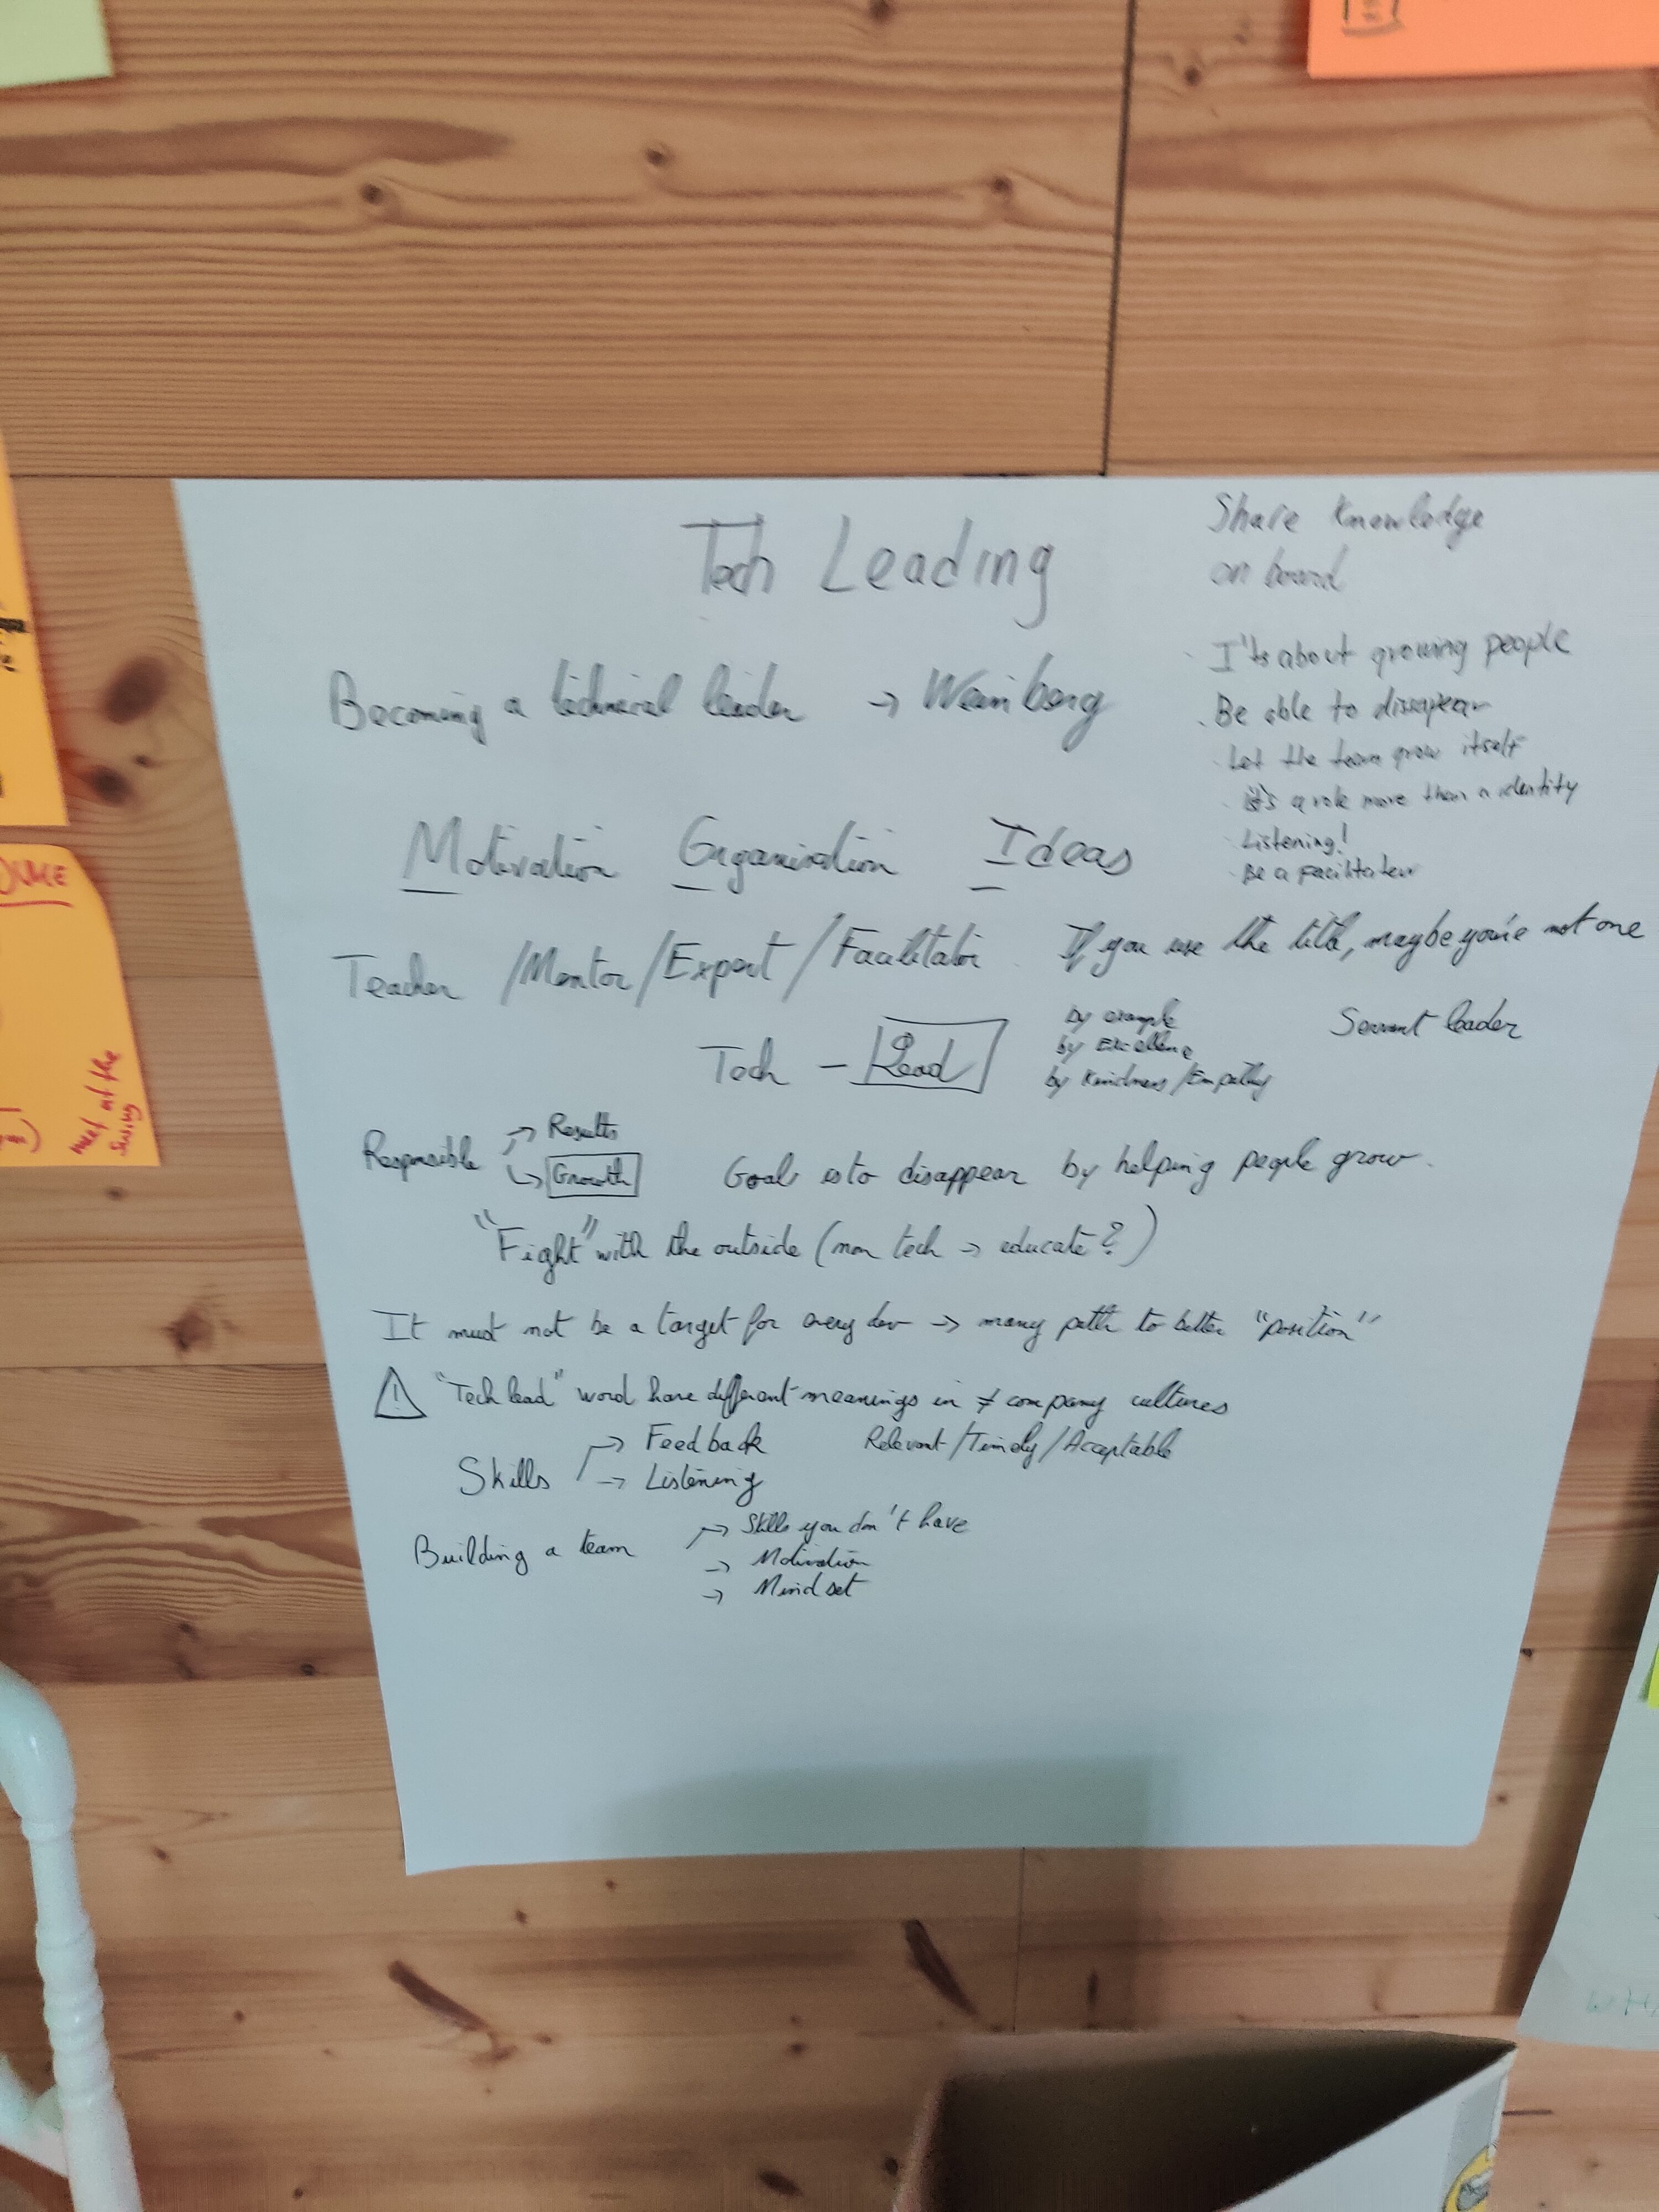 Tech Leading
Share Knowledge
on board
Becoming a technical leader → Weinberg
· I'ts about growing people
· Be able to dissapear
· Let the team grow itself
· it's a role more than a identity
· Listening!
· Be a Facilitateur
Motivation Organisation Ideas
Teacher /Mentor/Expert/Facilitator
If you use the title, maybe you're not one
Tech - Lead
by example
by Excellence
by Kindness/Empathy
Servant leader
Responsible → Results
↳ Growth
Goal is to disappear by helping people grow.
"Fight" with the outside (non tech → educate?)
It must not be a target for every dev → many path to better "position"
⚠ "Tech lead" word have different meanings in ≠ company cultures
Skills → Feedback Relevant/Timely/Acceptable
→ Listening
Building a team → Skills you don't have
→ Motivation
→ Mindset
meet at the
swing